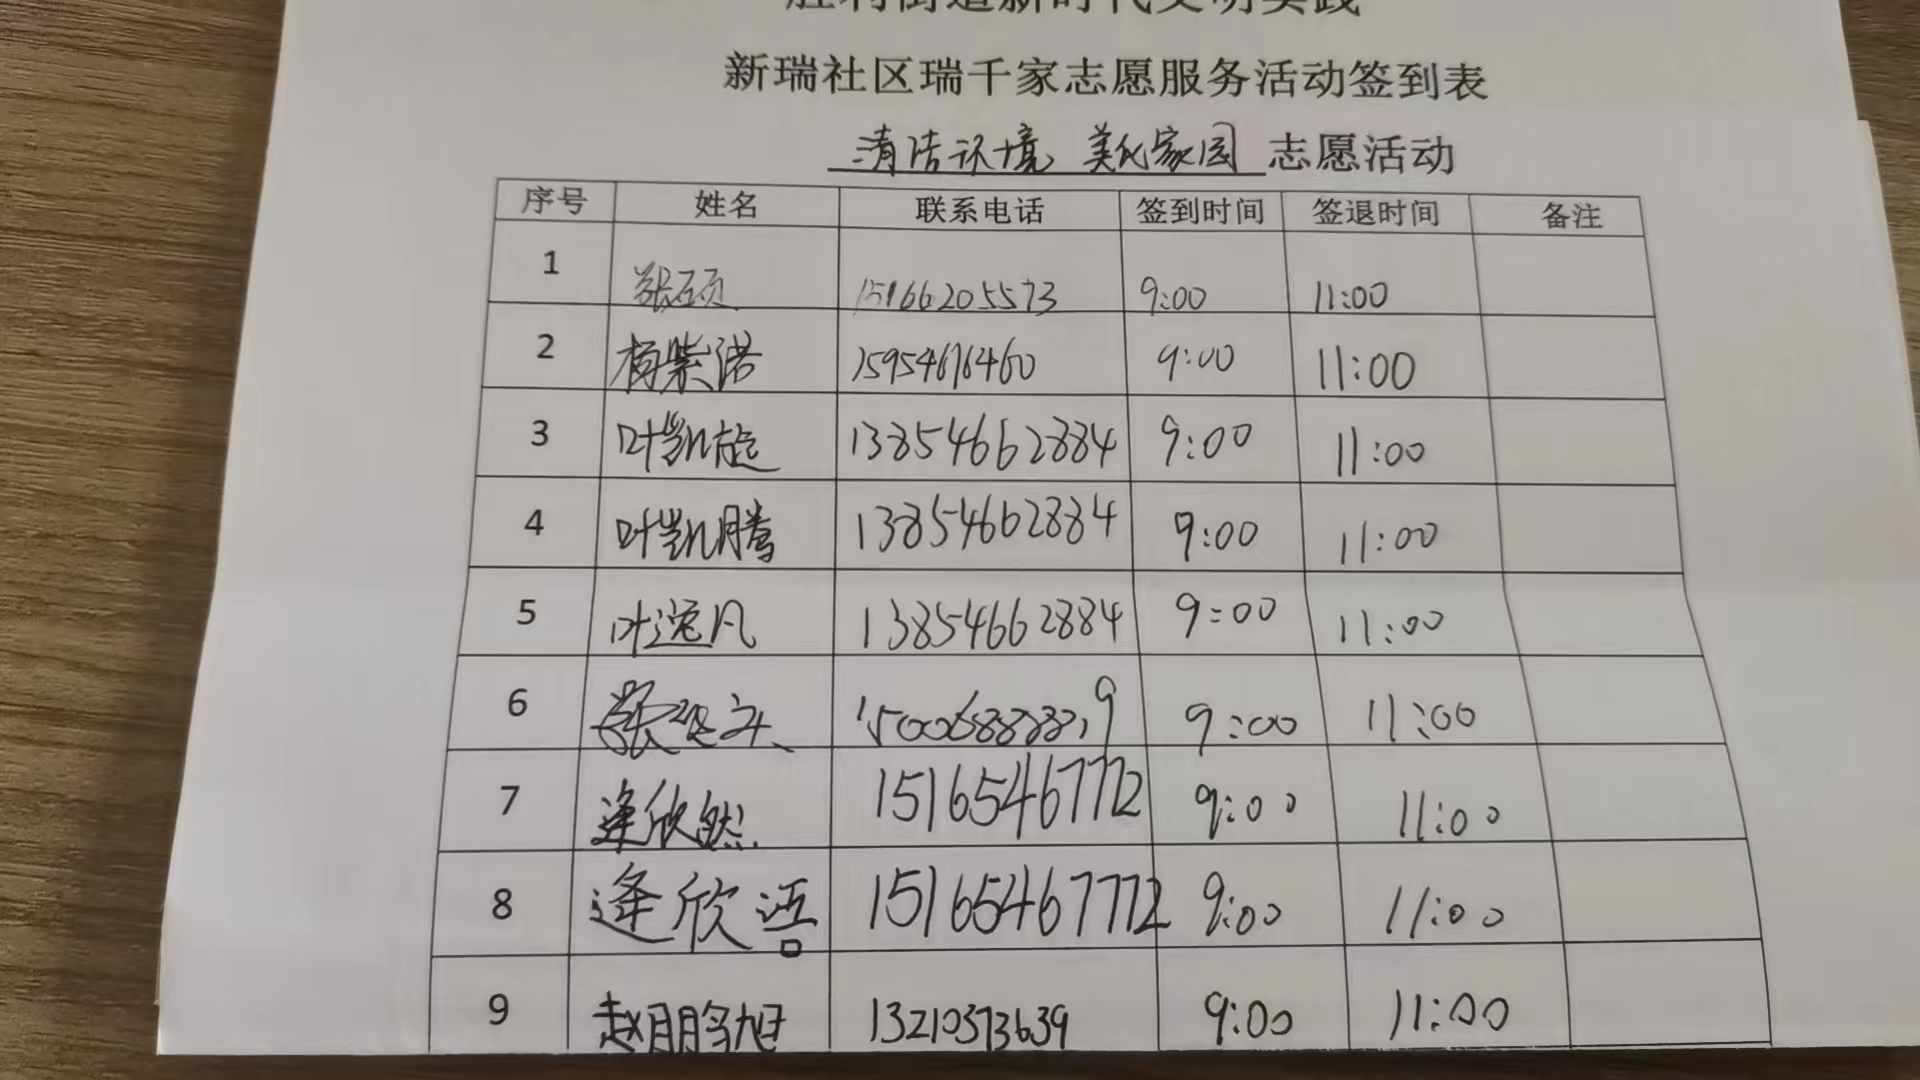 胜利街道新时代文明实践
新瑞社区瑞千家志愿服务活动签到表
清洁环境 美化家园 志愿活动
序号 姓名 联系电话 签到时间 签退时间 备注
1 张硕 15166205573 9:00 11:00
2 杨紫诺 15954676460 9:00 11:00
3 叶凯旋 13854662884 9:00 11:00
4 叶凯腾 13854662884 9:00 11:00
5 叶逸凡 13854662884 9:00 11:00
6 9:00 11:00
7 逄欣然 15165467772 9:00 11:00
8 逄欣语 15165467772 9:00 11:00
9 赵鹏旭 13210373639 9:00 11:00